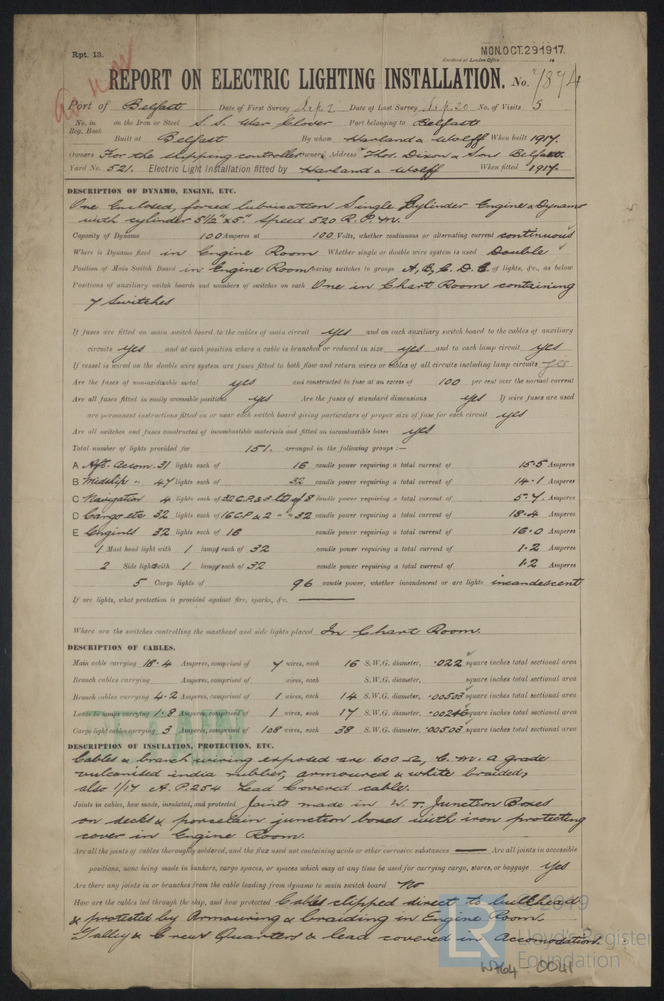 Rpt. 13.
MON. OCT. 29 1917.
Received at London Office
REPORT ON ELECTRIC LIGHTING INSTALLATION. No. 7894
Port of Belfast Date of First Survey Sep. 7 Date of Last Survey Sep. 20 No. of Visits 5
No. in Reg. Book on the Iron or Steel S.S. War Clover Port belonging to Belfast
Built at Belfast By whom Harland & Wolff When built 1917.
Owners For the shipping controller Owners' Address Thos. Dixon & Sons Belfast.
Yard No. 521. Electric Light Installation fitted by Harland & Wolff When fitted 1917.
DESCRIPTION OF DYNAMO, ENGINE, ETC.
One Enclosed, forced lubrication Single Cylinder Engine & Dynamo
with cylinder 5½" x 5" Speed 520 R.P.M.
Capacity of Dynamo 100 Amperes at 100 Volts, whether continuous or alternating current continuous
Where is Dynamo fixed in Engine Room Whether single or double wire system is used Double
Position of Main Switch Board in Engine Room having switches to groups A, B, C, D, E of lights, &c., as below
Positions of auxiliary switch boards and numbers of switches on each One in Chart Room containing
7 Switches
If fuses are fitted on main switch board to the cables of main circuit yes and on each auxiliary switch board to the cables of auxiliary
circuits yes and at each position where a cable is branched or reduced in size yes and to each lamp circuit yes
If vessel is wired on the double wire system are fuses fitted to both flow and return wires or cables of all circuits including lamp circuits yes
Are the fuses of non-oxidizable metal yes and constructed to fuse at an excess of 100 per cent over the normal current
Are all fuses fitted in easily accessible positions yes Are the fuses of standard dimensions yes If wire fuses are used
are permanent instructions fitted on or near each switch board giving particulars of proper size of fuse for each circuit yes
Are all switches and fuses constructed of incombustible materials and fitted on incombustible bases yes
Total number of lights provided for 151. arranged in the following groups :—
A Aft. Accom. 31 lights each of 16 candle power requiring a total current of 15.5 Amperes
B Midship " 47 lights each of 32 candle power requiring a total current of 14.1 Amperes
C Navigation 4 lights each of 32 C.P. & 3 candle power requiring a total current of 5.7 Amperes
D Cargo etc 32 lights each of 16 C.P. & 2 " " 32 candle power requiring a total current of 18.4 Amperes
E Engines 32 lights each of 16 candle power requiring a total current of 16.0 Amperes
1 Mast head light with 1 lamp each of 32 candle power requiring a total current of 1.2 Amperes
2 Side lights with 1 lamp each of 32 candle power requiring a total current of 1.2 Amperes
5 Cargo lights of 96 candle power, whether incandescent or arc lights incandescent
If arc lights, what protection is provided against fire, sparks, &c. —
Where are the switches controlling the masthead and side lights placed In Chart Room.
DESCRIPTION OF CABLES.
Main cable carrying 18.4 Amperes, comprised of 7 wires, each 16 S.W.G. diameter, .022 square inches total sectional area
Branch cables carrying Amperes, comprised of wires, each S.W.G. diameter, square inches total sectional area
Branch cables carrying 4.2 Amperes, comprised of 1 wires, each 14 S.W.G. diameter, .00503 square inches total sectional area
Leads to lamps carrying 1.8 Amperes, comprised of 1 wires, each 17 S.W.G. diameter, .00246 square inches total sectional area
Cargo light cables carrying 3 Amperes, comprised of 108 wires, each 38 S.W.G. diameter, .00503 square inches total sectional area
RETAIN
DESCRIPTION OF INSULATION, PROTECTION, ETC.
Cables & branch wiring exposed are 600 Ω, C.M.A grade
vulcanised india rubber, armoured & white braided,
also 1/17 A.P. 254 Lead Covered cable.
Joints in cables, how made, insulated, and protected Joints made in W.T. Junction Boxes
on decks & porcelain junction boxes with iron protecting
cover in Engine Room.
Are all the joints of cables thoroughly soldered, and the flux used not containing acids or other corrosive substances — Are all joints in accessible
positions, none being made in bunkers, cargo spaces, or spaces which may at any time be used for carrying cargo, stores, or baggage yes
Are there any joints in or branches from the cable leading from dynamo to main switch board No
How are the cables led through the ship, and how protected Cables clipped direct to bulkhead
& protected by Armouring & braiding in Engine Room
Galley & Crews Quarters & lead covered in Accomodation.
© 2019
LR
Lloyd's Register
Foundation
W764-0041